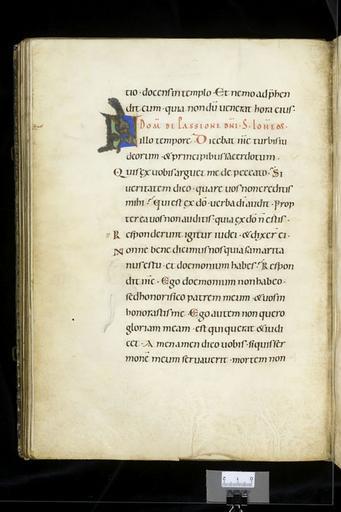 tio · docens in templo · Et nemo adp̄hen
dit eum · quia nondū venerat hora eius ·
DOM̄ DE PASSIONE DN̄I · S · IOHEM ·
In illo tempore · Dicebat ihc̄ turbis iu
deorum · & principibus sacerdotum ·
Quis ex vobis arguet me de peccato · Si
veritatem dico · quare vos non creditis
mihi · Qui est ex dō · verba di audit · Prop
terea vos non auditis · quia ex dō n̄ estis ·
Responderunt igitur iudei · & dixer̄ ei ·
Nonne bene dicimus nos quia samarita
nus es tu · et daemonium habes · Respon
dit ihc̄ · Ego daemonium non habeo ·
sed honorifico patrem meum · & vos in
honorastis me · Ego autem non quero
gloriam meam · est qui querat & iudi
cet · Amen amen dico vobis · si quis ser
monē meum servaverit · mortem non